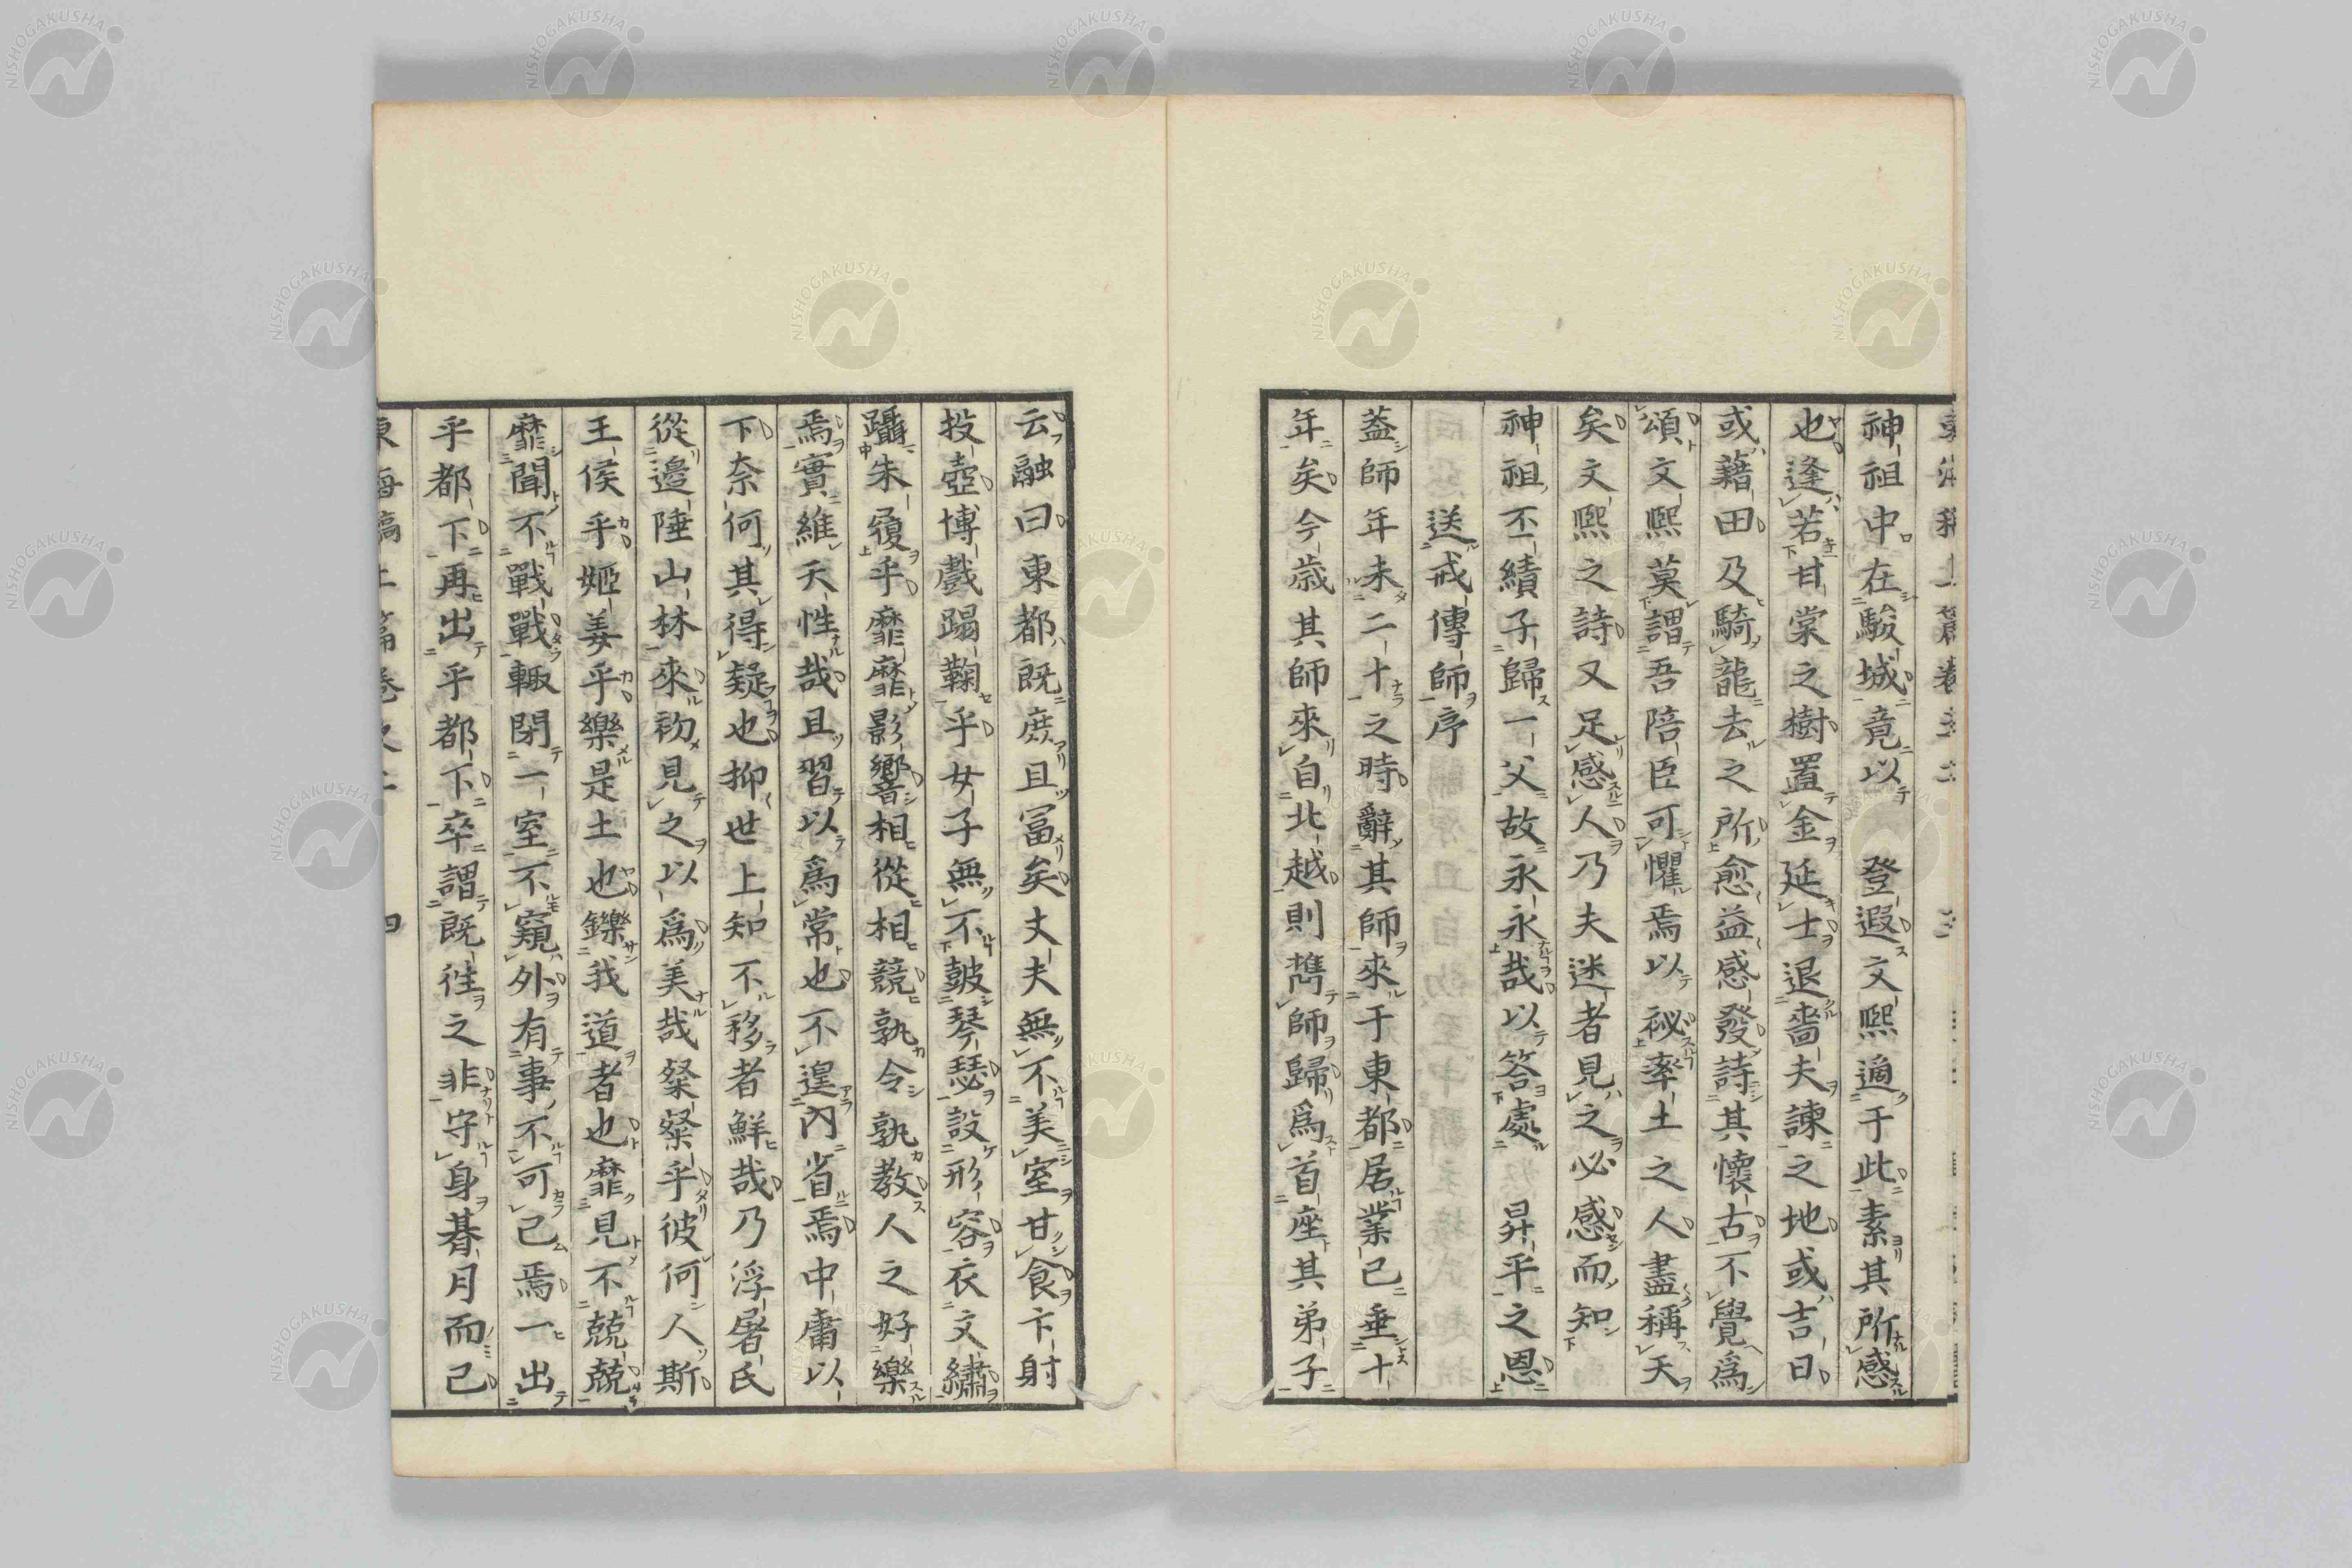 神祖中在駿城竟以　登遐文熙適于此素其所感
也逢若甘棠之樹置金延士退嗇夫諫之地或吉日
或藉田及騎龍去之所愈益感發詩其懷古不覺爲
頌文熙莫謂吾陪臣可懼焉以祕率土之人盡稱天
矣文熙之詩又足感人乃夫迷者見之必感而知
神祖丕績子歸一父故永永哉以答處　昇平之恩
送戒傳師序
蓋師年未二十之時辭其師來于東都居業已垂十
年矣今歳其師來自北越則攜師歸爲首座其弟子
云融曰東都既庶且冨矣丈夫無不美室甘食卞射
投壺博戲蹋鞠乎女子無不皷琴瑟設形容衣文繡
躡朱履乎靡靡影響相從相競孰令孰教人之好樂
焉實維天性哉且習以爲常也不遑內省焉中庸以
下奈何其得疑也抑世上知不移者鮮哉乃浮屠氏
從邉陲山林來初見之以爲美哉粲粲乎彼何人斯
王侯乎姬姜乎樂是土也鑠我道者也靡見不兢兢
靡聞不戰戰輙閉一室不窺外有事不可已焉一出
乎都下再出乎都下卒謂既徃之非守身朞月而已
四
NISHOGAKUSHA